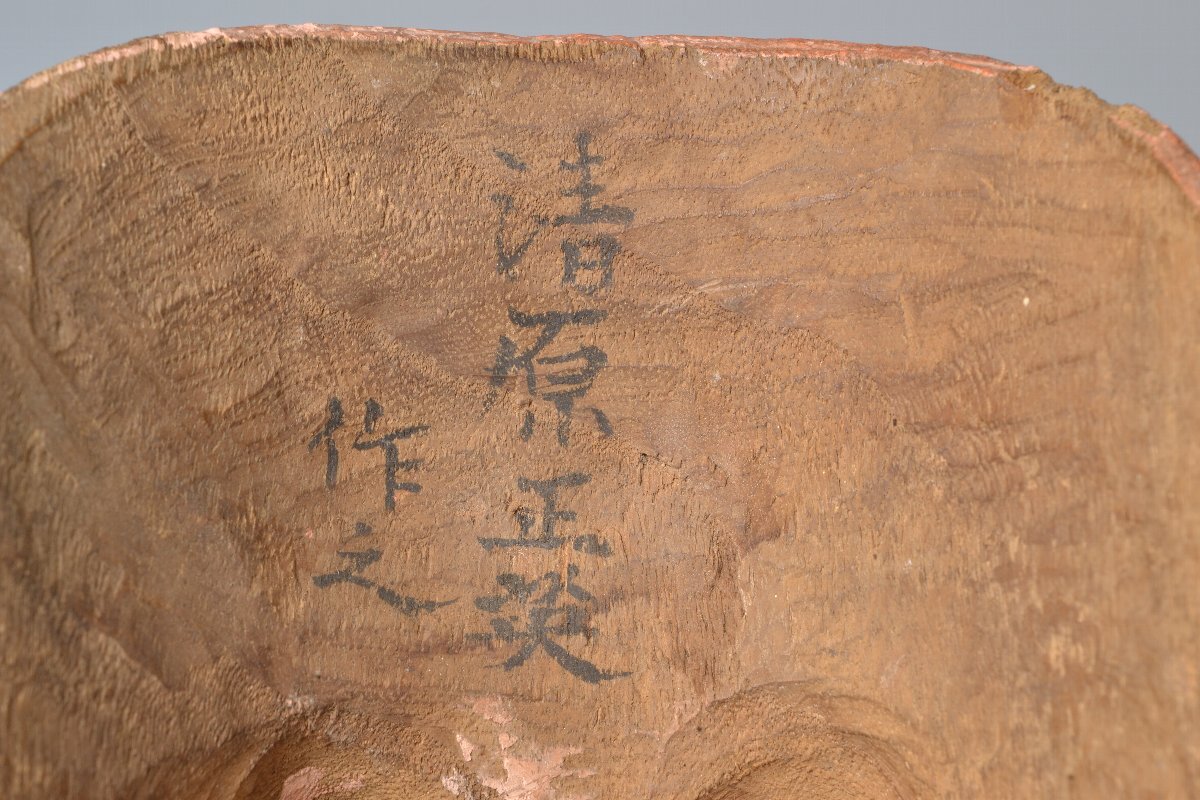 清原正
作之